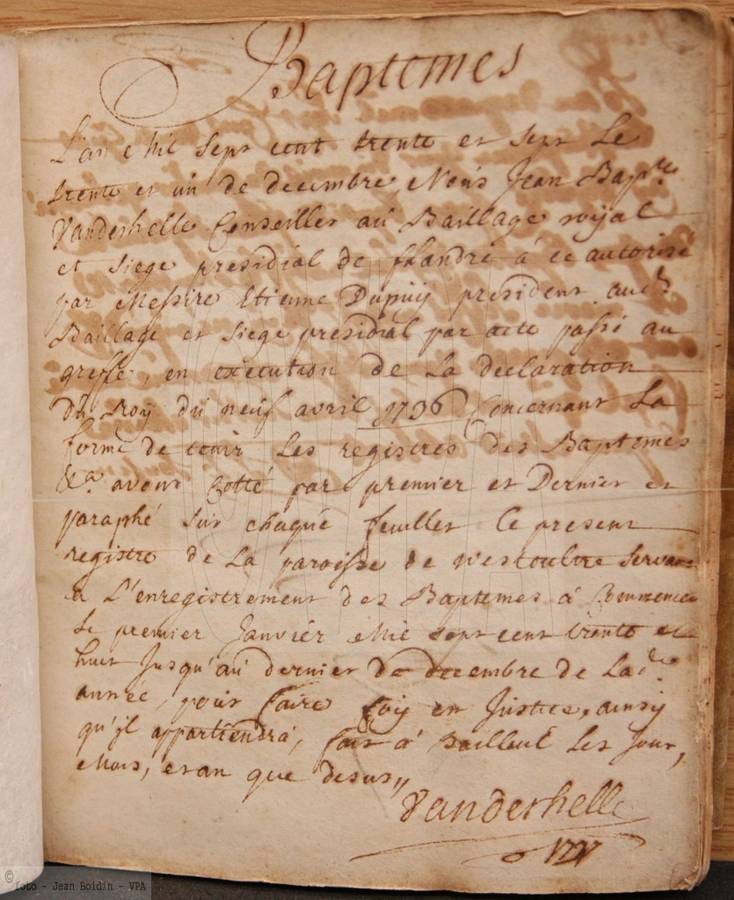 Baptemes
L'an Mil sept cent trente et sept Le
trente et un de decembre, Nous Jean Bapte
Vanderhelle Conseiller au Baillage royal
et siege presidial de fflandre à ce autorisé
par Messire Etienne Dupuy president audt
Baillage et siege presidial par acte passé au
greffe, en execution de La declaration
du Roy du neuf avril 1736 Concernant La
forme de tenir Les registres des Baptemes
&a avons Cotté par premier et Dernier et
paraphé sur chaque feuillet le present
registre de La paroisse de westoutre servant
a L'enregistrement des Baptemes à Commencer
Le premier Janvier Mil sept cent trente et
huit Jusqu'au dernier de decembre de Ladte
année, pour faire foy en Justice, ainsy
qu'il appartiendra, fait à Bailleul Les Jour,
Mois, et an que desus,,
Vanderhelle
1737
© foto - Jean Boidin - VPA